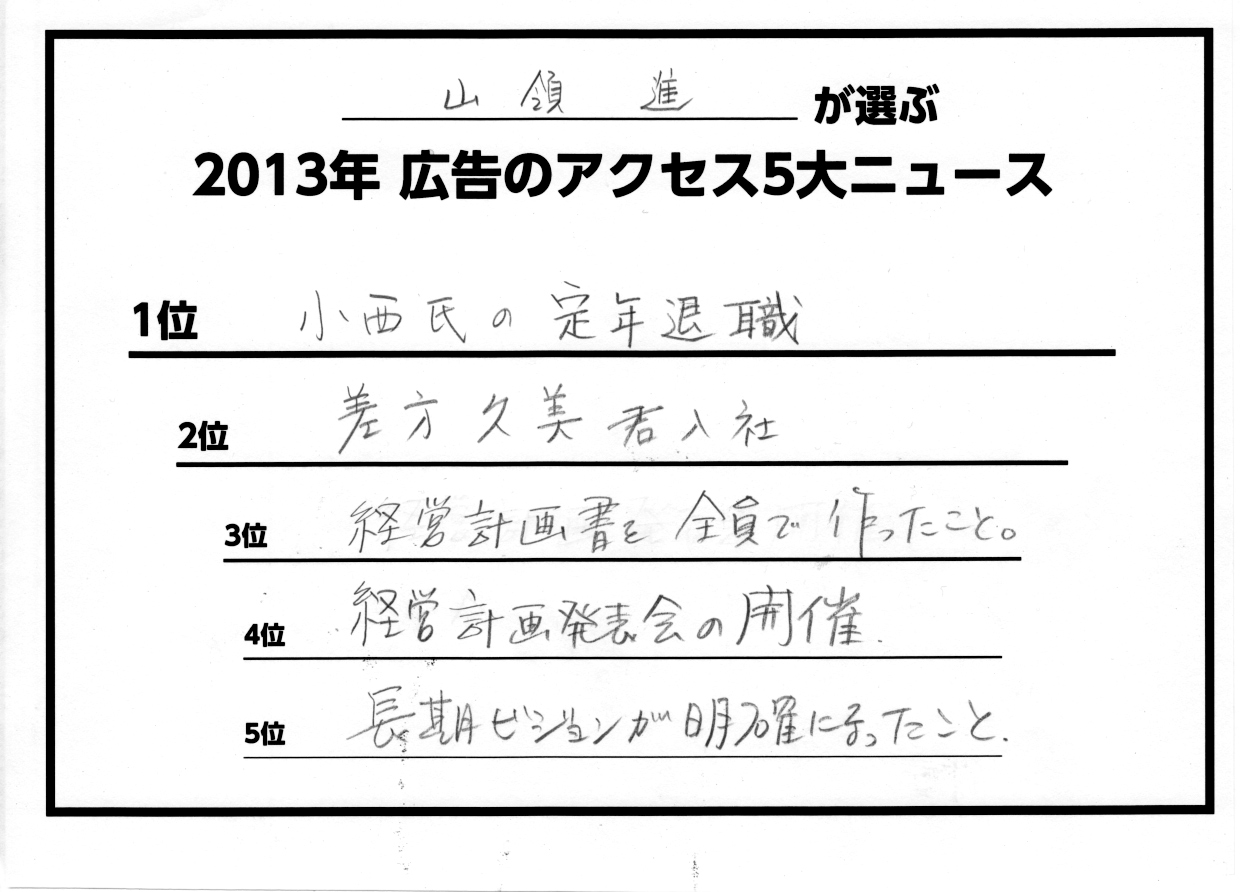 山領 進 が選ぶ
2013年 広告のアクセス5大ニュース
1位 小西氏の定年退職
2位 差方久美君入社
3位 経営計画書を全員で作ったこと。
4位 経営計画発表会の開催.
5位 長期ビジョンが明確になったこと.